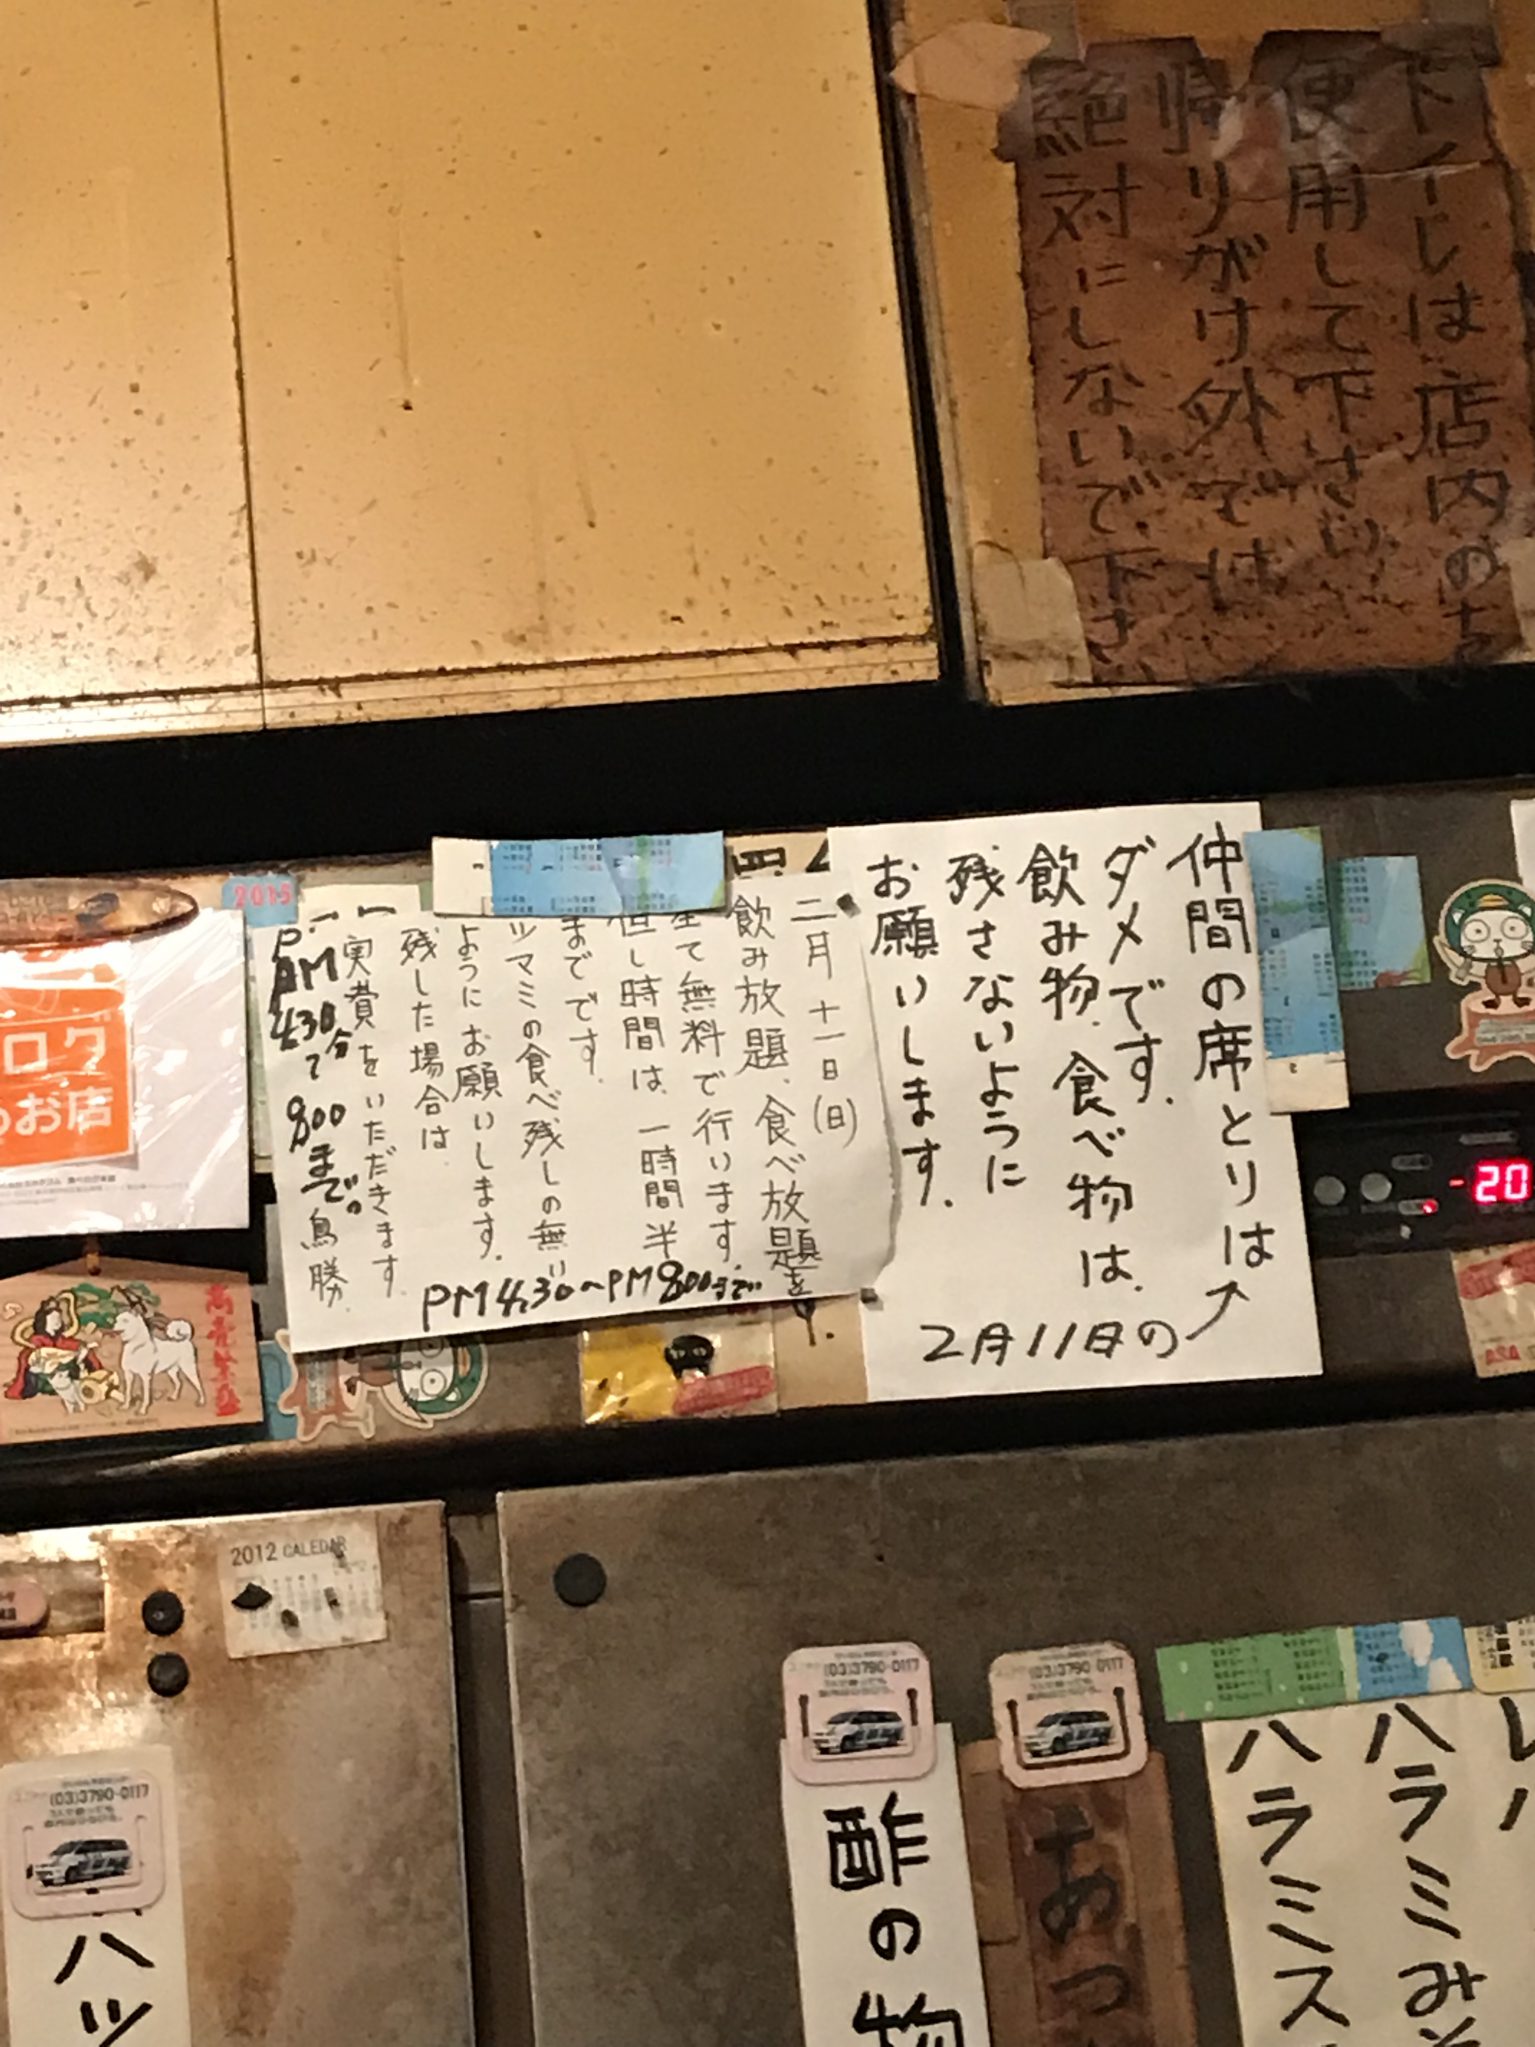 トイレは店内のを
使用して下さい
帰りがけ外では
絶対にしないで下さ
仲間の席とりは
ダメです。
飲み物、食べ物は、
残さないように
お願いします。
2月11日の
二月十一日(日)
飲み放題、食べ放題を
全て無料で行います。
但し時間は、一時間半
までです。
ツマミの食べ残しの無い
ようにお願いします。
残した場合は
実費をいただきます。
PM4,30〜PM800まで
PM
430分
で
800まで。
鳥勝
2015
ログ
お店
-20
商売繁盛
2012 CALEDAR
(03)3790-0117
(03)3790-0117
(03)3790-0117
ハツ
酢の物
あつ
ハラミス
ハラミみそ
レバ
ASA